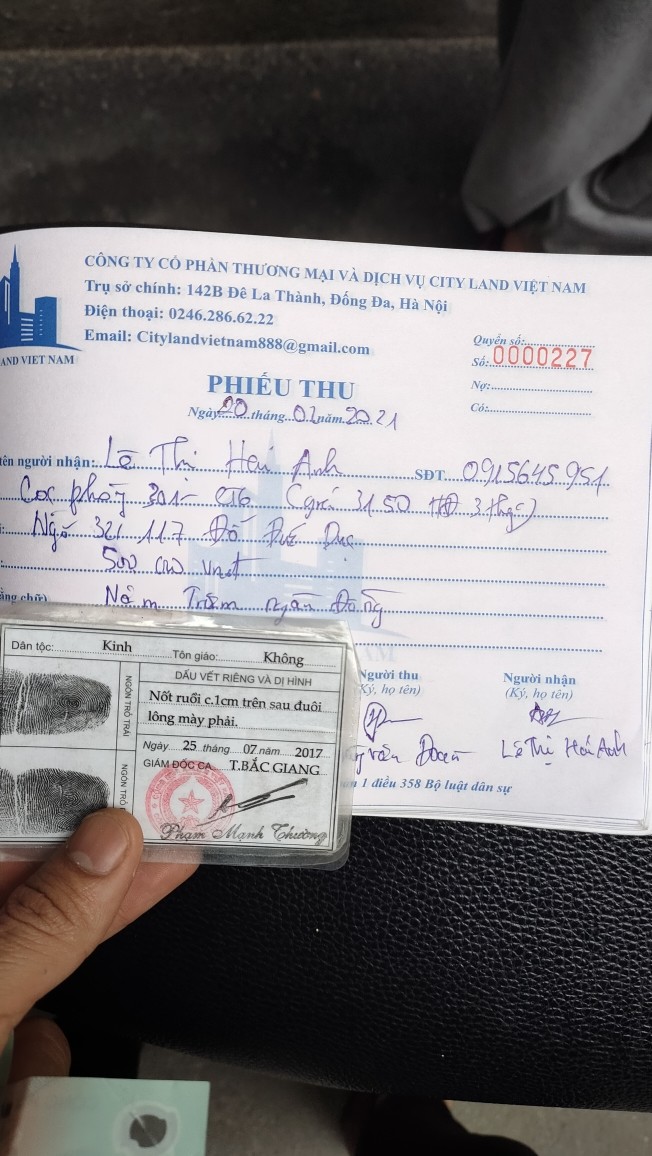 CÔNG TY CỔ PHẦN THƯƠNG MẠI VÀ DỊCH VỤ CITY LAND VIỆT NAM
Trụ sở chính: 142B Đê La Thành, Đống Đa, Hà Nội
Điện thoại: 0246.286.62.22
Email: Citylandvietnam888@gmail.com
AND VIET NAM
Quyển số:
Số: 0000227
Nợ:
Có:
PHIẾU THU
Ngày 20 tháng 01 năm 2021
tên người nhận: Lê Thị Hải Anh SĐT. 0915645951
Cọc phòng 301 - CT6 ( giá 3150 HĐ 3 tháng)
Ngõ 321 117 Đỗ Đức Dục
500 000 vnđ
bằng chữ) Năm Trăm ngàn Đồng
Người thu
(Ký, họ tên)
Người nhận
(Ký, họ tên)
văn Đoàn
Lê Thị Hải Anh
1 điều 358 Bộ luật dân sự
Dân tộc: Kinh Tôn giáo: Không
NGÓN TRỎ TRÁI
DẤU VẾT RIÊNG VÀ DỊ HÌNH
Nốt ruồi c.1cm trên sau đuôi
lông mày phải.
Ngày 25 tháng 07 năm 2017
GIÁM ĐỐC CA T.BẮC GIANG
NGÓN TRỎ
Phạm Mạnh Thường